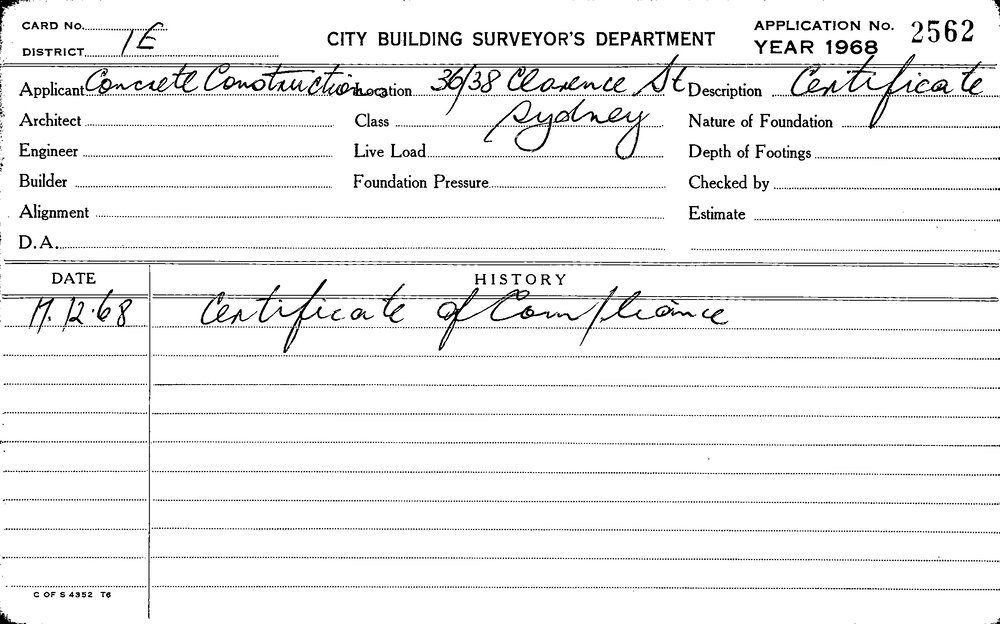 CARD No.
DISTRICT 1E
CITY BUILDING SURVEYOR'S DEPARTMENT
APPLICATION No. 2562
YEAR 1968
Applicant Concrete Constructions Location 36/38 Clarence St Description Certificate
Architect Class Sydney Nature of Foundation
Engineer Live Load Depth of Footings
Builder Foundation Pressure Checked by
Alignment Estimate
D.A.
DATE HISTORY
17.12.68 Certificate of Compliance
C OF S 4352 T6